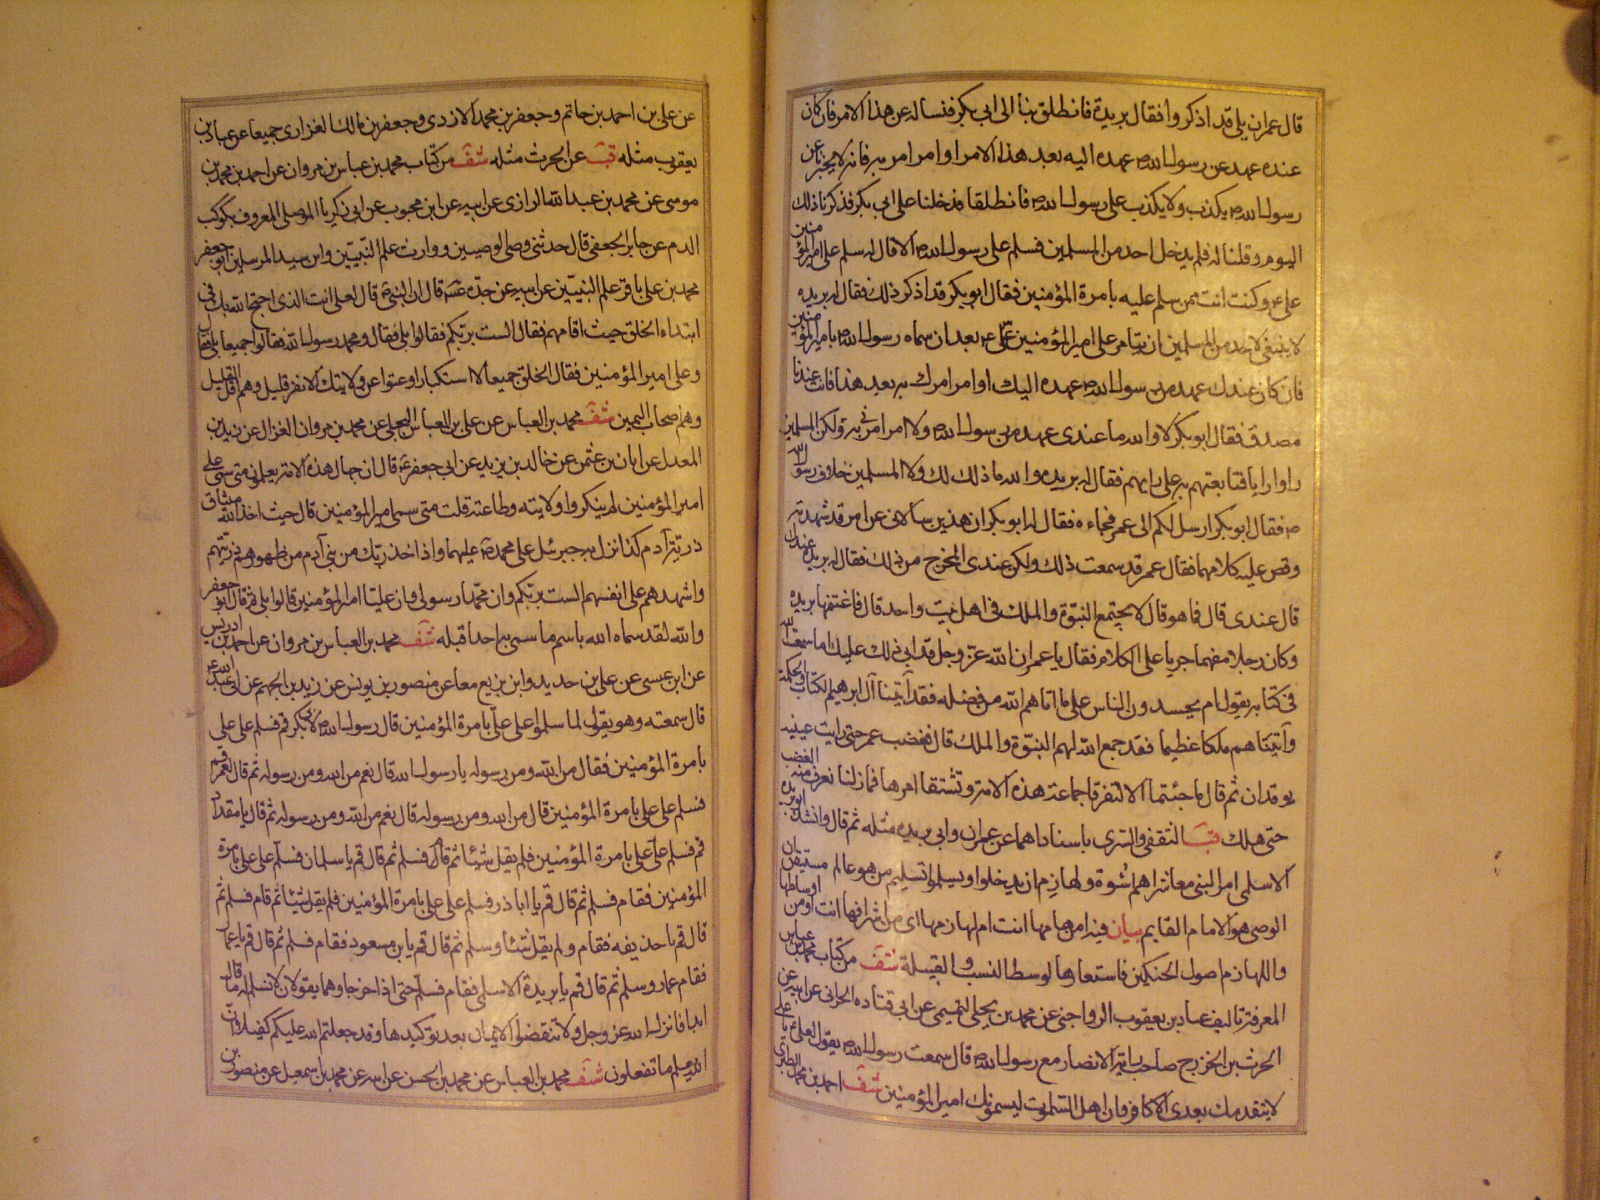 قال عمران بلى قد اذكر وا فقال بريدة فانطلق بنا الى ابى بكر فنساله عن هذا الامر فان كان
عنده عهد عن رسول الله ص عهده اليه بعد هذا الامر او امر امر به فانه لا يخبرنا عن
رسول الله ص يكذب ولا يكذب على رسول الله ص فانطلقا فدخلنا على ابى بكر فذكرنا ذلك
اليوم و قلنا له فلم يدخل احد من المسلمين فسلم على رسول الله ص الا قال له سلم على امير المؤمنين
على ع وكنت انت ممن سلم عليه بامرة المؤمنين فقال ابو بكر قد اذكر ذلك فقال له بريده
لا ينبغى لاحد من المسلمين ان يتامر على امير المؤمنين على ع بعد ان سماه رسول الله ص بامير المؤمنين
فان كان عندك عهد من رسول الله ص عهده اليك او امر امرك به بعد هذا فانت عندنا
مصدق فقال ابو بكر لا والله ما عندى عهد من رسول الله ص ولا امر امرنى به ولكن المسلمين
راوا رايا فتابعتهم به على رايهم فقال له بريده والله ما ذلك لك ولا المسلمين خلاف رسول الله
ص فقال ابو بكر ارسل لكم الى عمر فجاءه فقال له ابو بكر ان هذين سالانى عن امر قد شهدته
وقص عليه كلامهما فقال عمر قد سمعت ذلك ولكن عندى المخرج من ذلك فقال له بريده عندك
قال عندى قال فما هو قال لا يجتمع النبوة والملك فى اهل بيت واحد قال فاغتنمها بريده
وكان رجلا مفهما جريا على الكلام فقال يا عمر ان الله عز وجل قد ابى ذلك عليك اما سمعت الله
فى كتابه يقول ام يحسدون الناس على ما اتاهم الله من فضله فقد آتينا آل ابرهيم الكتاب والحكمة
وآتيناهم ملكا عظيما فقد جمع الله لهم النبوة والملك قال فغضب عمر حتى رايت عينيه
يوقدان ثم قال ما جئتما الا لتفرقا جماعة هذه الامة وتشتتا امرها فما زلنا نعرف منه الغضب
حتى هلك قب الثقفى والسرى باسنادهما عن عمران وابى بريده مثله ثم قال وانشد بريده
الاسلمى امر النبى معاشرا هم اسوة ولهازم ان يدخلوا ويسلموا تسليم من هو عالم مستيقن ان
الوصى هو الامام القايم بيان فيه امن هامها انت ام لهازمها اى من اشرافها انت او من اوساطها
واللهازم اصول الحنكين فاستعارها لوسط النسب و القبيلة شف من كتاب محمد بن عباس
المعرفة تاليف عباد بن يعقوب الرواجنى عن محمد بن يحيى التميمى عن ابى قتاده الحرانى عن ابيه عن
الحرث بن الخزرج صاحب راية الانصار مع رسول الله ص قال سمعت رسول الله ص يقول لعلى ع يا على
لا يتقدمك بعدى الا كافر وان اهل السموات ليسمونك امير المؤمنين شف احمد بن محمد الطبرى
عن على بن احمد بن حاتم و جعفر بن محمد الازدى و جعفر بن مالك الفزارى جميعا عن عباد بن
يعقوب مثله قب عن الحرث مثله شف من كتاب محمد بن عباس بن مروان عن احمد بن محمد بن
موسى عن محمد بن عبد الله الرازى عن ابيه عن ابن محبوب عن ابى زكريا الموصلى المعروف بكوكب
الدم عن جابر الجعفى قال حدثنى وصى الوصيين و وارث علم النبيين وابن سيد المرسلين ابو جعفر
محمد بن على باقر علم النبيين عن ابيه عن جده ع قال ان النبى ص قال لعلى انت الذى احتج الله بك فى
ابتداء الخلق حيث اقامهم فقال الست بربكم فقالوا بلى فقال و محمد رسول الله فقالوا جميعا بلى فقال
وعلى امير المؤمنين فقال الخلق جميعا لا استكبارا وعتوا عن ولايتك الا نفر قليل وهم اقل القليل
وهم اصحاب اليمين شف محمد بن العباس عن على بن العباس البجلى عن محمد بن مروان الغزال عن زيد بن
المعدل عن ابان بن عثمن عن خالد بن يزيد عن ابى جعفر ع قال ان جهال هذه الامة يعلمون متى سمى على
امير المؤمنين لم ينكروا ولايته وطاعته قلت متى سمى امير المؤمنين قال حيث اخذ الله ميثاق
ذرية آدم كذا نزل به جبرئيل على محمد ص عليهما واذ اخذ ربك من بنى آدم من ظهورهم ذريتهم
واشهدهم على انفسهم الست بربكم وان محمدا رسولى وان عليا امير المؤمنين قالوا بلى ثم قال ابو جعفر
والله لقد سماه الله باسم ما سمى به احدا قبله شف محمد بن العباس بن مروان عن احمد بن ادريس
عن ابن عيسى عن على بن حديد و ابن بزيع معا عن منصور بن يونس عن زيد بن الجهم عن ابى عبد الله ع
قال سمعته وهو يقول لما سلموا على على بامرة المؤمنين قال رسول الله ص لابى بكر قم فسلم على على
بامرة المؤمنين فقال من الله ومن رسوله يا رسول الله قال نعم من الله ومن رسوله ثم قال لعمر قم
فسلم على على بامرة المؤمنين قال من الله ومن رسوله قال نعم من الله ومن رسوله ثم قال يا مقداد
قم فسلم على على بامرة المؤمنين فلم يقل شيئا ثم قام فسلم ثم قال قم يا سلمان فسلم على على بامرة
المؤمنين فقام فسلم ثم قال قم يا ابا ذر فسلم على على بامرة المؤمنين فلم يقل شيئا ثم قام فسلم ثم
قال قم يا حذيفه فقام و لم يقل شيئا وسلم ثم قال قم يا بن مسعود فقام فسلم ثم قال قم يا عمار
فقام عمار وسلم ثم قال قم يا بريدة الاسلمى فقام فسلم حتى اذا خرجا وهما يقولان لا نسلم له ما قال
ابدا فانزل الله عز وجل ولا تنقضوا الايمان بعد توكيدها وقد جعلتم الله عليكم كفيلا ان
الله يعلم ما تفعلون شف محمد بن العباس عن محمد بن الحسن عن ابيه عن محمد بن اسمعيل عن منصور بن